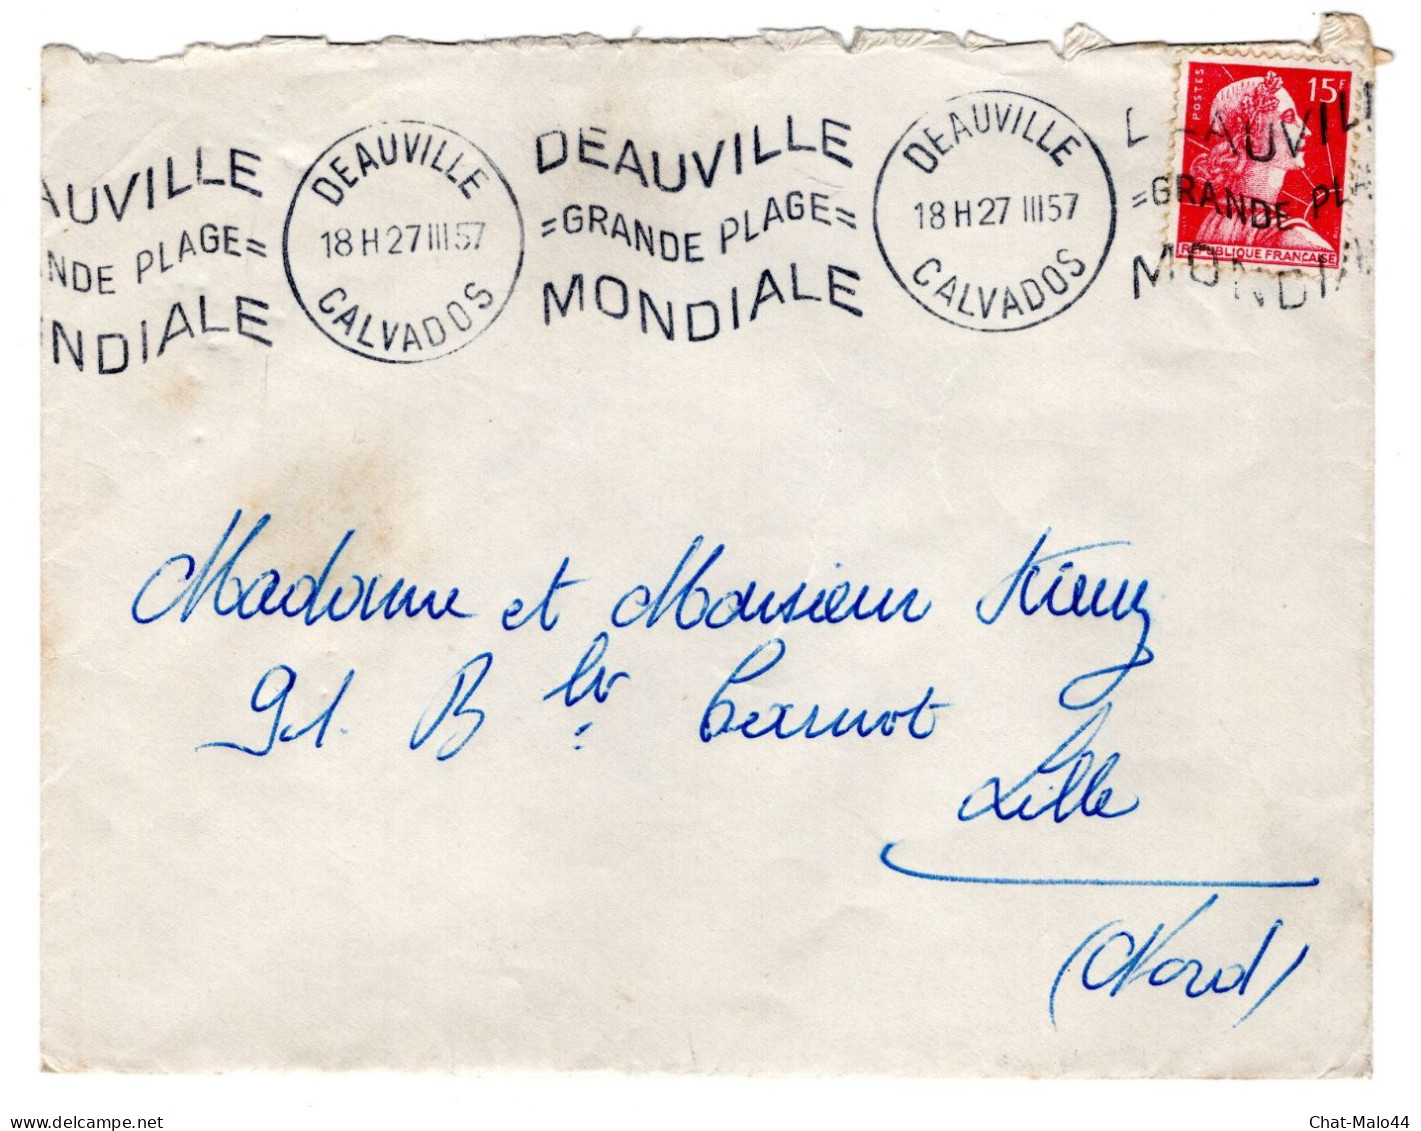 AUVILLE
NDE PLAGE=
NDIALE
DEAUVILLE
18H27III57
CALVADOS
DEAUVILLE
=GRANDE PLAGE=
MONDIALE
DEAUVILLE
18H27III57
CALVADOS
DEAUVILL
=GRANDE PLA
MONDIA
POSTES
15F
REPUBLIQUE FRANÇAISE
Madame et Monsieur
91. B lv. Carnot
Lille
(Nord)
delcampe.net
Chat-Malo44